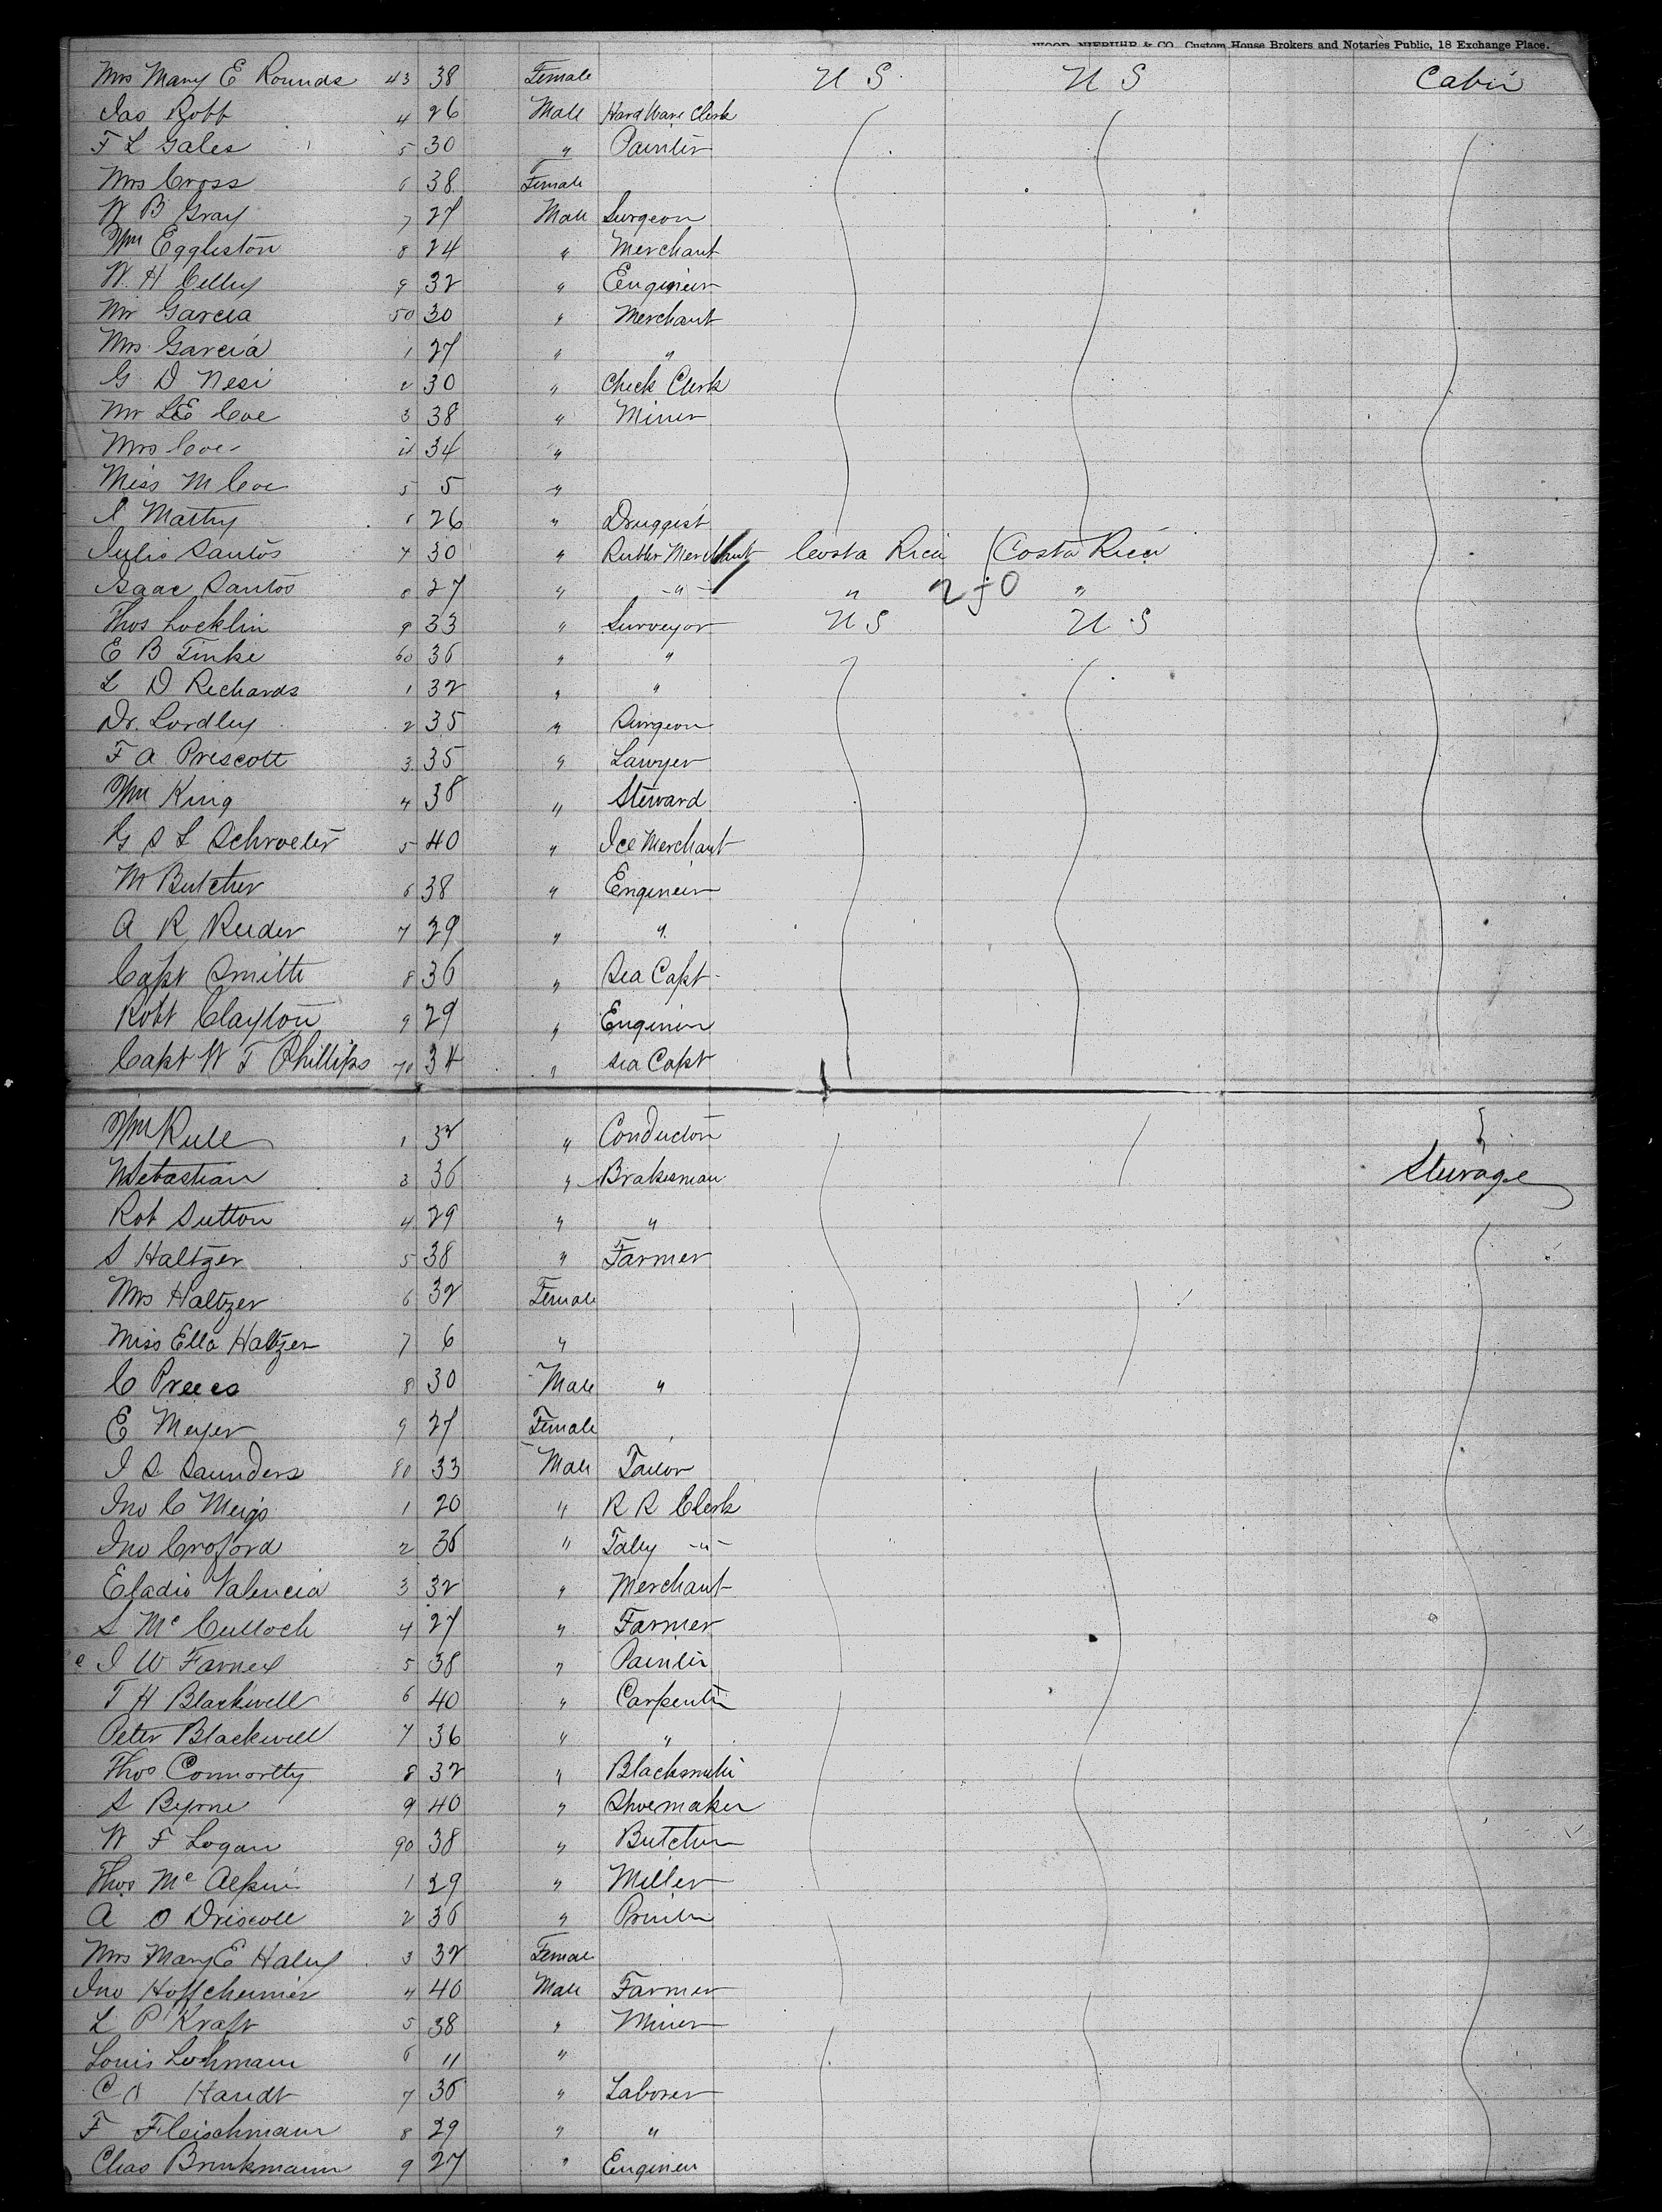 WOOD, NIEBUHR & CO., Custom House Brokers and Notaries Public, 18 Exchange Place.
Mrs Mary E Rounds 43 38 Female U S U S Cabin
Jas Robb 4 26 Male Hard Ware Clerk
F L Gales 5 30 " Painter
Mrs Cross 6 38 Female
W B Gray 7 27 Male Surgeon
Wm Eggleston 8 24 " Merchant
W. H Celley 9 32 " Engineer
Mr Garcia 50 30 " Merchant
Mrs Garcia 1 27 " "
G D Nesi 2 30 " Check Clerk
Mr L E Coe 3 38 " Miner
Mrs Coe 4 34 "
Miss M Coe 5 5 "
Mathy 6 26 " Druggist
Julio Santos 7 30 " Rubber Merchant Costa Rica Costa Rica
Isaac Santos 8 27 " " " "
Thos Locklin 9 33 " Surveyor U S U S
E B Tinke 60 36 " "
L D Richards 1 32 " "
Dr. Lordley 2 35 " Surgeon
F A Prescott 3 35 " Lawyer
Wm King 4 38 " Steward
G S L Schroeter 5 40 " Ice Merchant
M Butcher 6 38 " Engineer
A R Reeder 7 29 " "
Capt Smith 8 36 " Sea Capt
Robt Clayton 9 29 " Engineer
Capt W T Phillips 70 34 " Sea Capt
Wm Rule 1 32 " Conductor
Sebastian 3 36 " Brakesman Steerage
Rob Sutton 4 29 " "
S Haltzer 5 38 " Farmer
Mrs Haltzer 6 32 Female
Miss Ella Haltzer 7 6 "
C Preecs 8 30 Male "
E Meyer 9 27 Female
J S Saunders 80 33 Male Tailor
Jno C Meigs 1 20 " R R Clerk
Jno Croford 2 36 " Taley "
Eladio Valencia 3 32 " Merchant
S McCulloch 4 27 " Farmer
J W Farnell 5 38 " Painter
T H Blackwell 6 40 " Carpenter
Peter Blackwell 7 36 " "
Thos Connortty 8 32 " Blacksmith
S Byrne 9 40 " Shoemaker
W F Logan 90 38 " Butcher
Thos McAlpin 1 29 " Miller
A O Driscoll 2 36 " Printer
Mrs Mary E Haley 3 32 Female
Jno Hoffcheimer 4 40 Male Farmer
L P Kraft 5 38 " Miner
Louis Lochmann 6 11 "
C O Hardt 7 36 " Laborer
F Fleischmann 8 29 " "
Chas Brinkmann 9 27 " Engineer